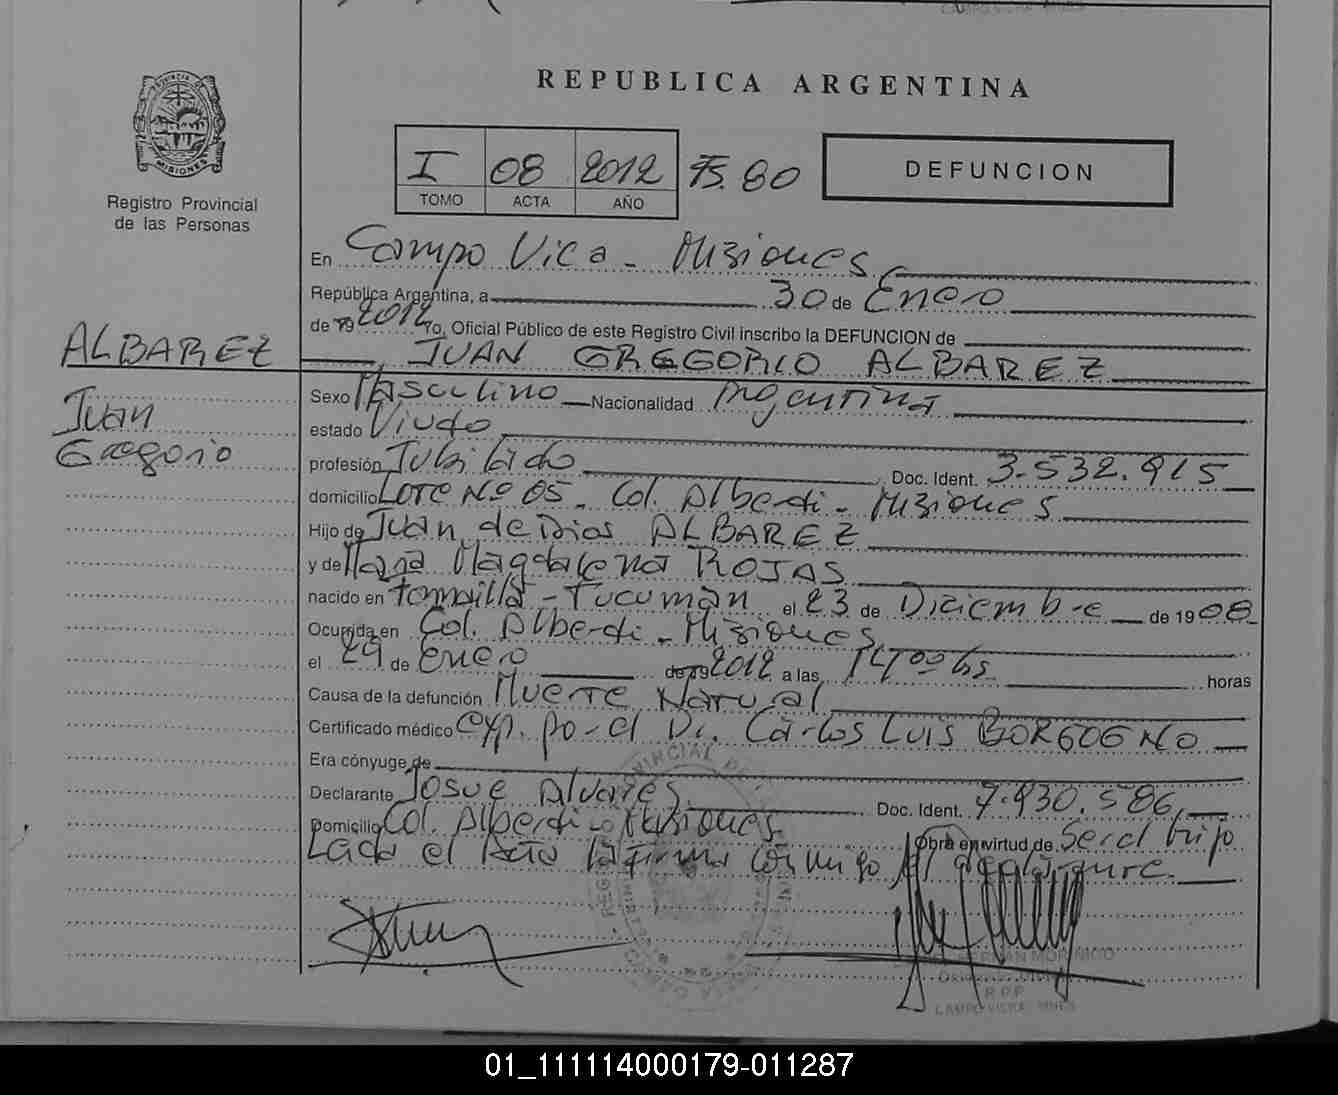 REPUBLICA ARGENTINA
MISIONES
Registro Provincial
de las Personas
I 08 2012 80
TOMO ACTA AÑO
DEFUNCION
En Campo Viera - Misiones
República Argentina, a 30 de Enero
de 19 2012 Yo, Oficial Público de este Registro Civil inscribo la DEFUNCION de
ALBAREZ
JUAN GREGORIO ALBAREZ
Juan
Gregorio
Sexo Masculino Nacionalidad Argentina
estado Viudo
profesión Jubilado Doc. Ident. 3.532.915
domicilio Lote Nº 05 - Col. Alberdi - Misiones
Hijo de Juan de Dios ALBAREZ
y de Maria Magdalena ROJAS
nacido en - Tucuman el 23 de Diciembre de 1908
Ocurrida en Col. Alberdi - Misiones
el 29 de Enero de 19 2012 a las 14,00 hs horas
Causa de la defunción Muerte Natural
Certificado médico exp. por el Dr. Carlos Luis BORGOGNO
Era cónyuge de
Declarante Josue Alvares Doc. Ident. 7.930.586
Domicilio Col. Alberdi - Misiones Obra en virtud de Ser el hijo
Leida el Acta la firma conmigo el declarante.
R.P.P.
01_111114000179-011287